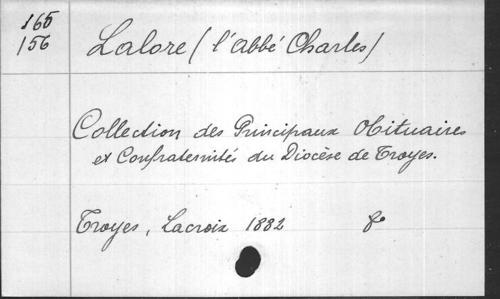 165
156
Lalore (l'abbé Charles)
Collection des Principaux Obituaires
et Confraternités du Diocèse de Troyes.
Troyes, Lacroix 1882